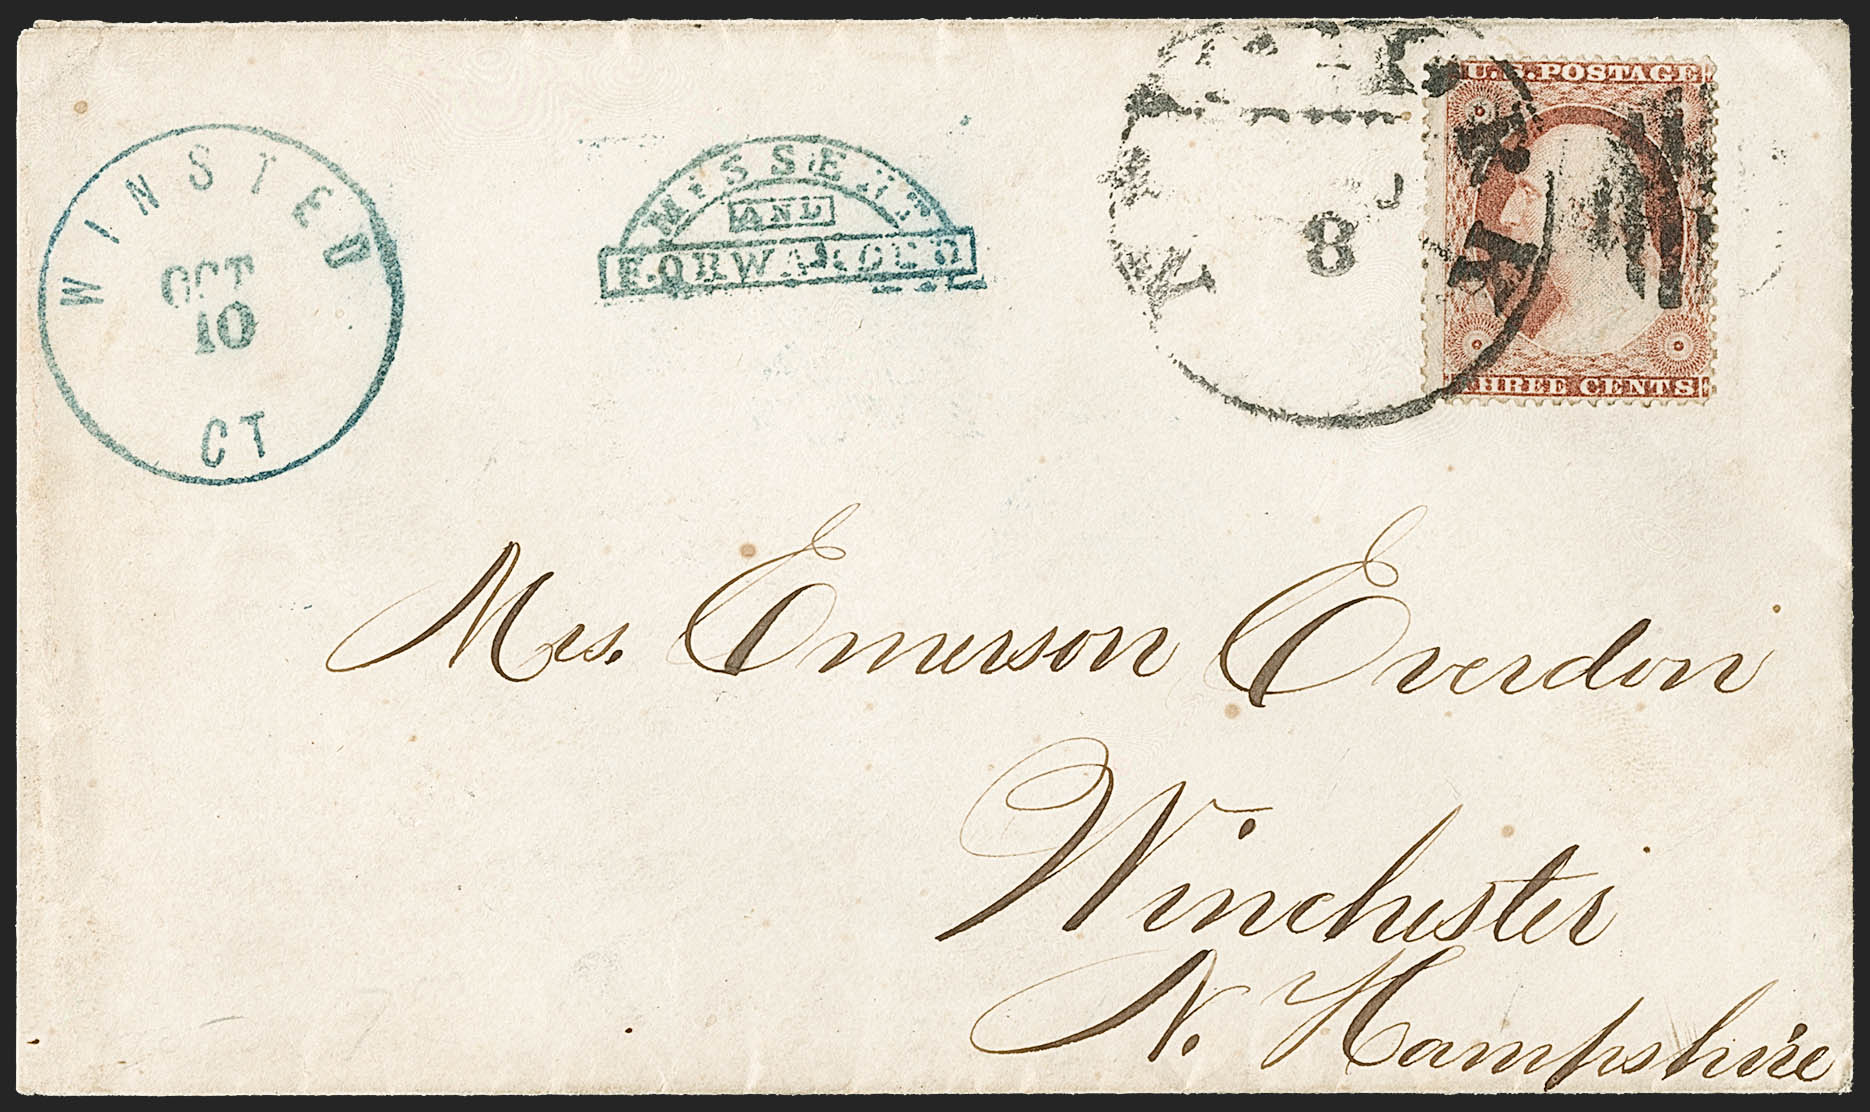 WINSTED
OCT
10
CT
MISSENT
AND
FORWARDED
8
U.S. POSTAGE
THREE CENTS
Mrs. Emerson Everdon
Winchester
N. Hampshire